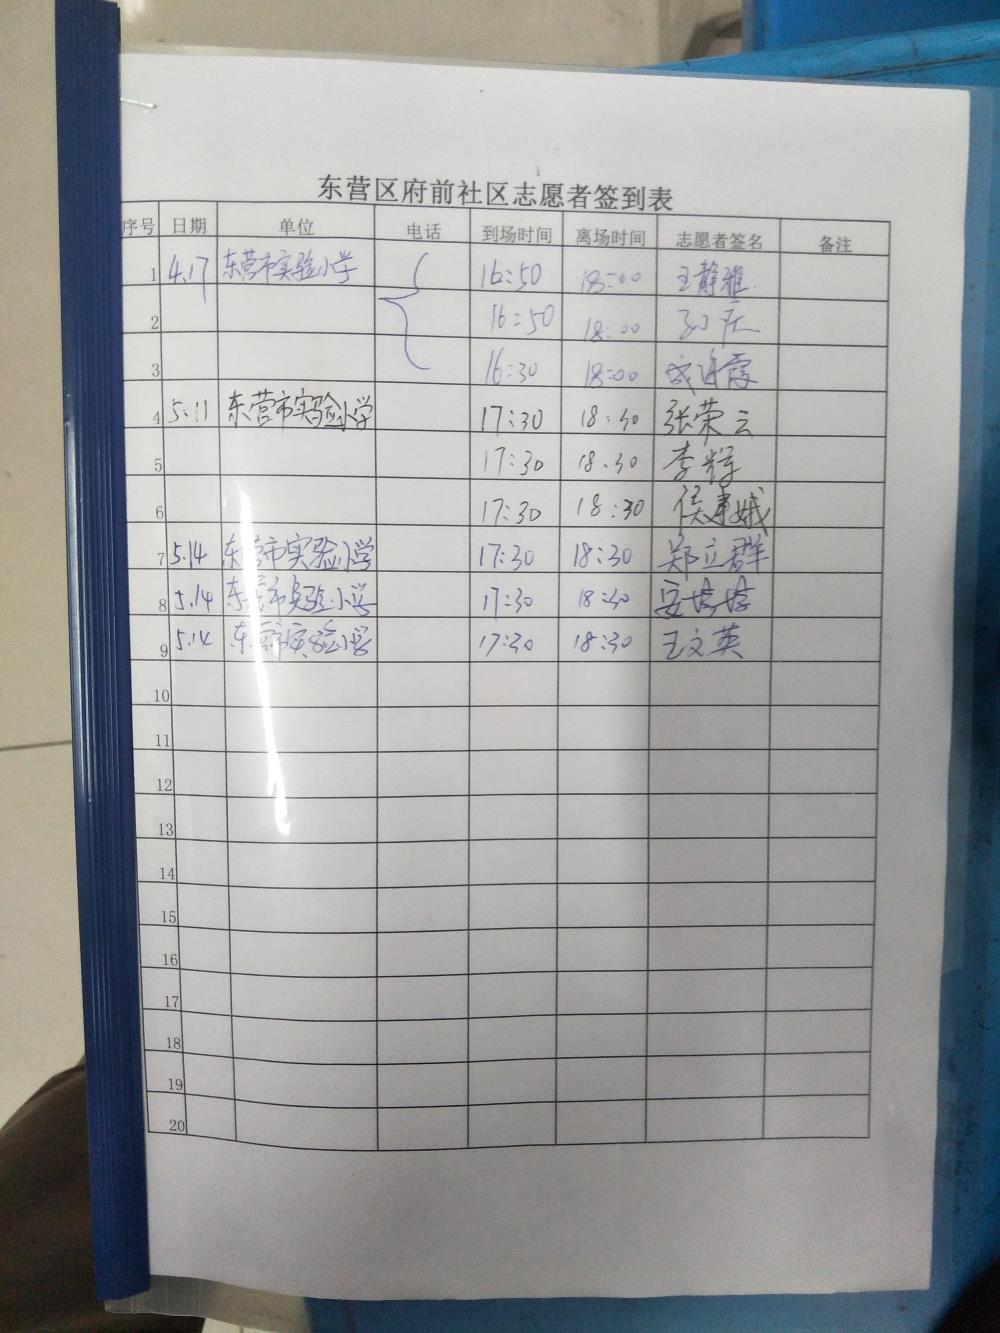 东营区府前社区志愿者签到表
序号 日期 单位 电话 到场时间 离场时间 志愿者签名 备注
1 4.17 东营市实验小学 16:50 18:00 王静雅
2 16:50 18:00
3 16:30 18:00
4 5.11 东营市实验小学 17:30 18:30 张荣云
5 17:30 18:30 李辉
6 17:30 18:30 侯建娥
7 5.14 东营市实验小学 17:30 18:30 郑立群
8 5.14 东营市实验小学 17:30 18:30 安婷婷
9 5.14 东营市实验小学 17:30 18:30 王文英
10
11
12
13
14
15
16
17
18
19
20